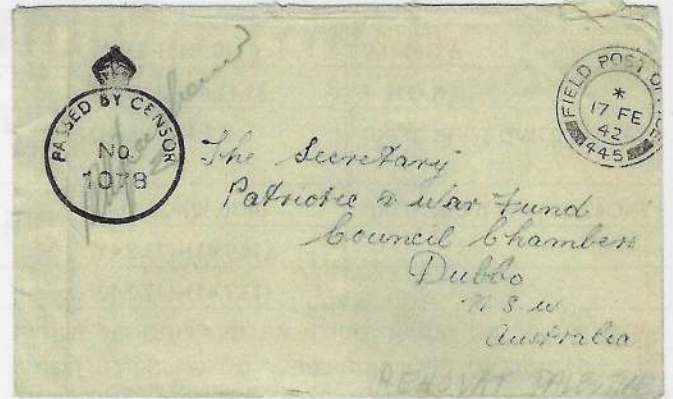 PASSED BY CENSOR
No.
1078
FIELD POST OFFICE
*
17 FE
42
445
The Secretary
Patriotic & War Fund
Council Chambers
Dubbo
N.S.W
Australia